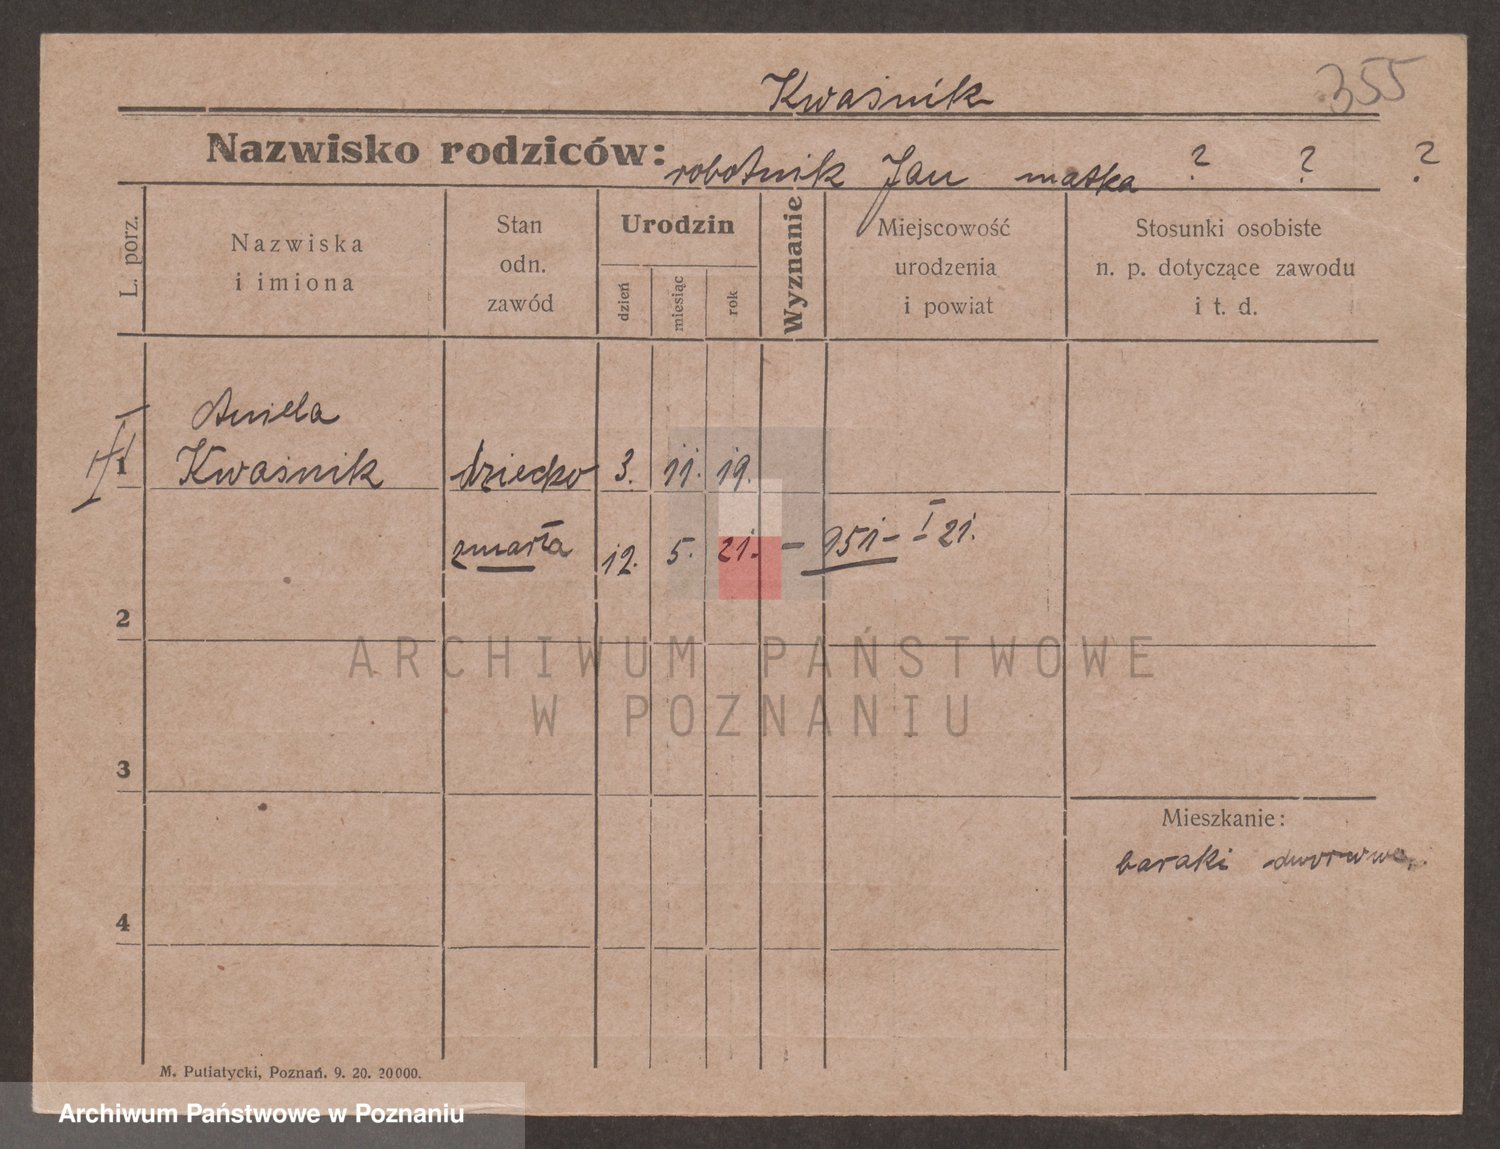 Kwaśnik 355
Nazwisko rodziców: robotnik Jan matka ? ? ?
L. porz.
Nazwiska
i imiona
Stan
odn.
zawód
Urodzin
dzień
miesiąc
rok
Wyznanie
Miejscowość
urodzenia
i powiat
Stosunki osobiste
n. p. dotyczące zawodu
i t. d.
Aniela
1 Kwaśnik dziecko 3. 11. 19.
zmarła 12. 5. 21. – 951 – I 21.
2
ARCHIWUM PAŃSTWOWE
W POZNANIU
3
Mieszkanie:
baraki
4
M. Putiatycki, Poznań. 9. 20. 20000.
Archiwum Państwowe w Poznaniu